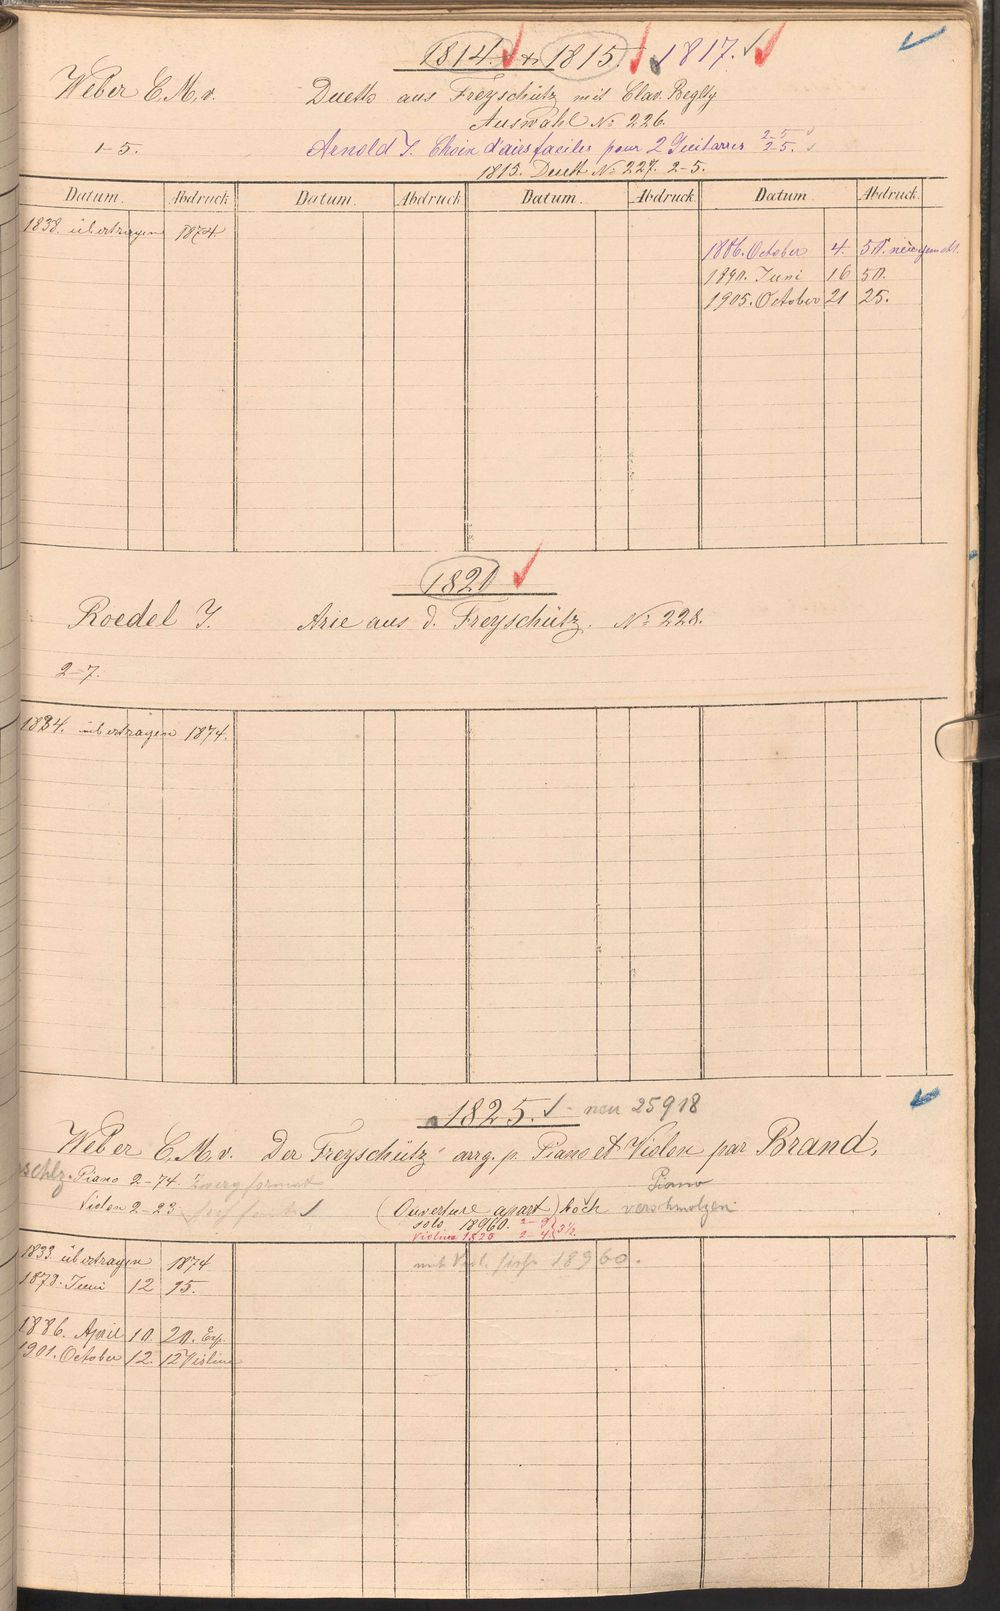 1814. & 1815. 1817.
Weber C. M. v. Duetto aus Freyschütz mit Clav. Beglty
Auswahl No 226.
1-5. Arnold J. Choix d'airs faciles pour 2 Guitarres 2-5. 2-5.
1815. Duett No 227. 2-5.
Datum. Abdruck Datum. Abdruck Datum. Abdruck. Datum Abdruck.
1838. übertragen 1874.
1886. October 4. 50. neu gemacht.
1890. Juni 16 50.
1905. October 21 25.
1820
Roedel J. Arie aus d. Freyschütz. No 228.
2-7.
1834. übertragen 1874.
1825. - neu 25918
Weber C. M. v. Der Freyschütz arrg. p. Piano et Violon par Brand.
Piano 2-74. Zwergformat Piano
Violon 2-23 (Ouverture apart) hoch verschmolzen
solo 18960. 2-9
Violine 1825 2-4 3½.
1833. übertragen 1874
mit Viol. siehe 18960.
1878. Juni 12 15.
1886. April 10. 20. Exp.
1901. October 12. 12 Violine